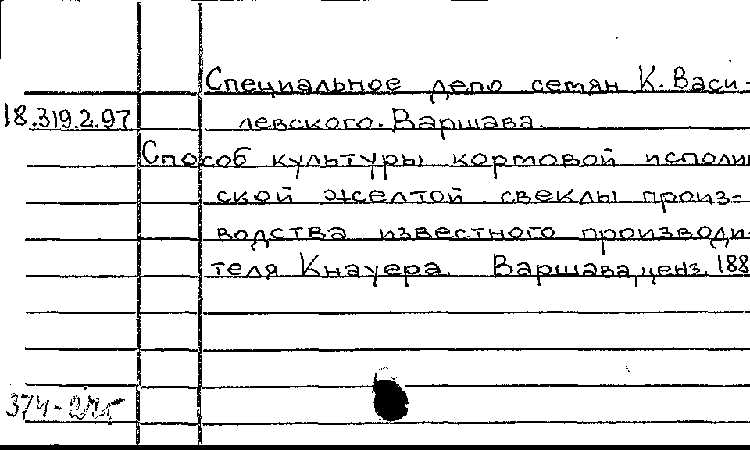 Специальное депо семян К. Васи-
18.319.2.97 левского. Варшава.
Способ культуры кормовой исполин
ской желтой свеклы произ-
водства известного производи-
теля Кнауера. Варшава, ценз. 188